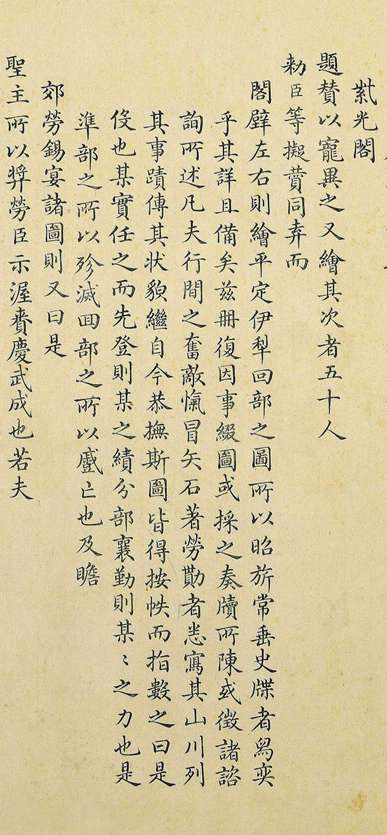 紫光閣
題贊以寵異之又繪其次者五十人
勑臣等擬贊同弆而
閣壁左右則繪平定伊犁回部之圖所以昭旂常垂史牒者舃奕
乎其詳且備矣茲冊復因事綴圖或採之奏牘所陳或徵諸諮
詢所述凡夫行間之奮敵愾冒矢石著勞勩者悉寫其山川列
其事蹟傳其狀貌繼自今恭撫斯圖皆得按帙而指數之曰是
役也某實任之而先登則某之績分部襄勤則某〻之力也是
準部之所以殄滅回部之所以蕆亡也及瞻
郊勞錫宴諸圖則又曰是
聖主所以奬勞臣示渥賚慶武成也若夫